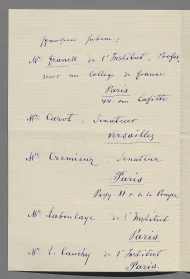 Mr Franck de l'Institut, Profes
seur au Collège de France
Paris
44. rue Lafitte
Mr Carot, Senateur
Versailles
Mr Cremieux, Senateur
Paris
Passy. 11 r. de la Pompe
Mr Laboulaye de l'Institut
Paris
Mr E. Cauchy de l'Institut
Paris.